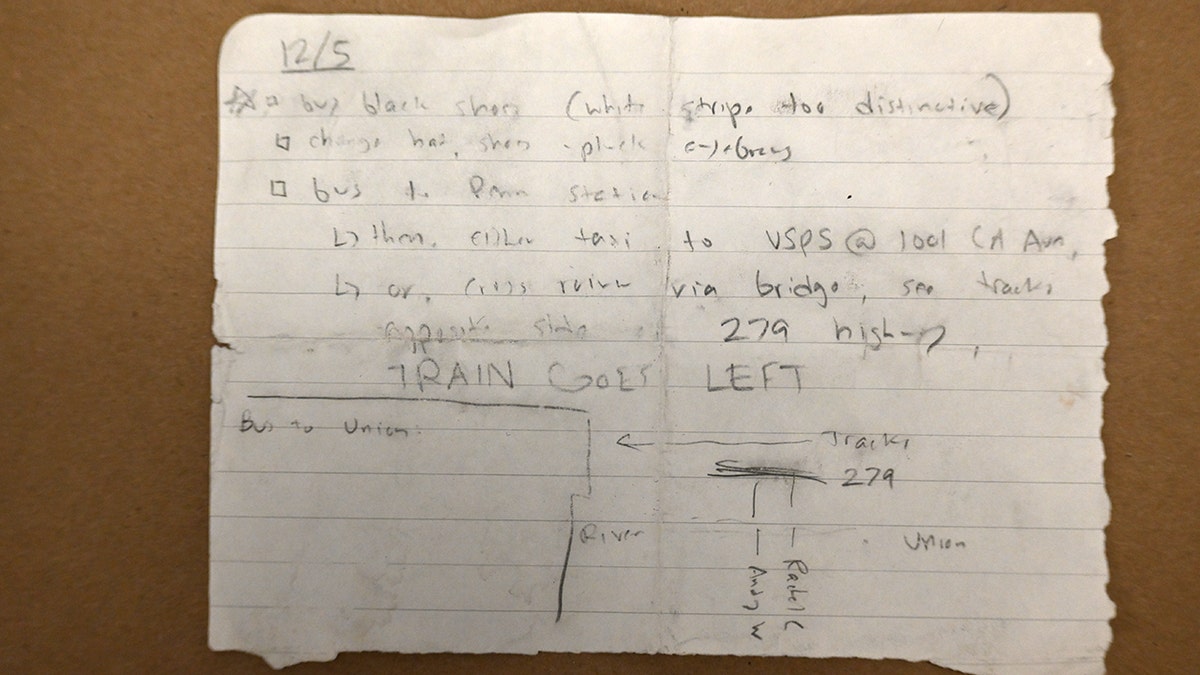 12/5
buy black shoes (white stripe too distinctive)
change hat, shoes, pluck eyebrows
bus to Penn station
then, either taxi to USPS @ 1001 CA Ave,
or, cross river via bridge, see tracks
opposite side 279 highway,
TRAIN GOES LEFT
Bus to Union.
Tracks
279
River
Union
Andy W
Rachel C